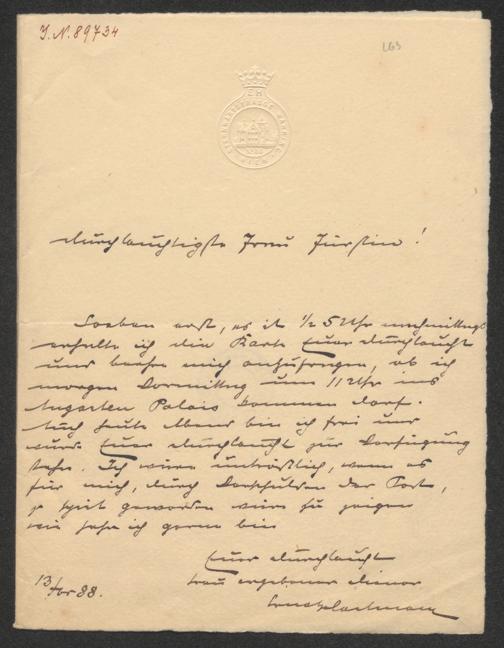 I.N. 89734
LGS
E.H.
STERNWARTESTRASSE WÄHRING
WIEN
Durchlauchtigste Frau Fürstin!
Soeben erst, es ist 1/2 5 Uhr nachmittags
erhalte ich die Karte Euer Durchlaucht
und beehre mich anzufragen, ob ich
morgen Vormittag um 11 Uhr ins
Augarten Palais kommen darf.
Auch heute Abend bin ich frei und
würde Euer Durchlaucht zur Verfügung
stehn. Ich wäre untröstlich, wenn es
für mich, durch Verschulden der Post,
zu spät geworden wäre zu zeigen
wie sehr ich gerne bin
Euer Durchlaucht
treu ergebener Diener
13/ 88.